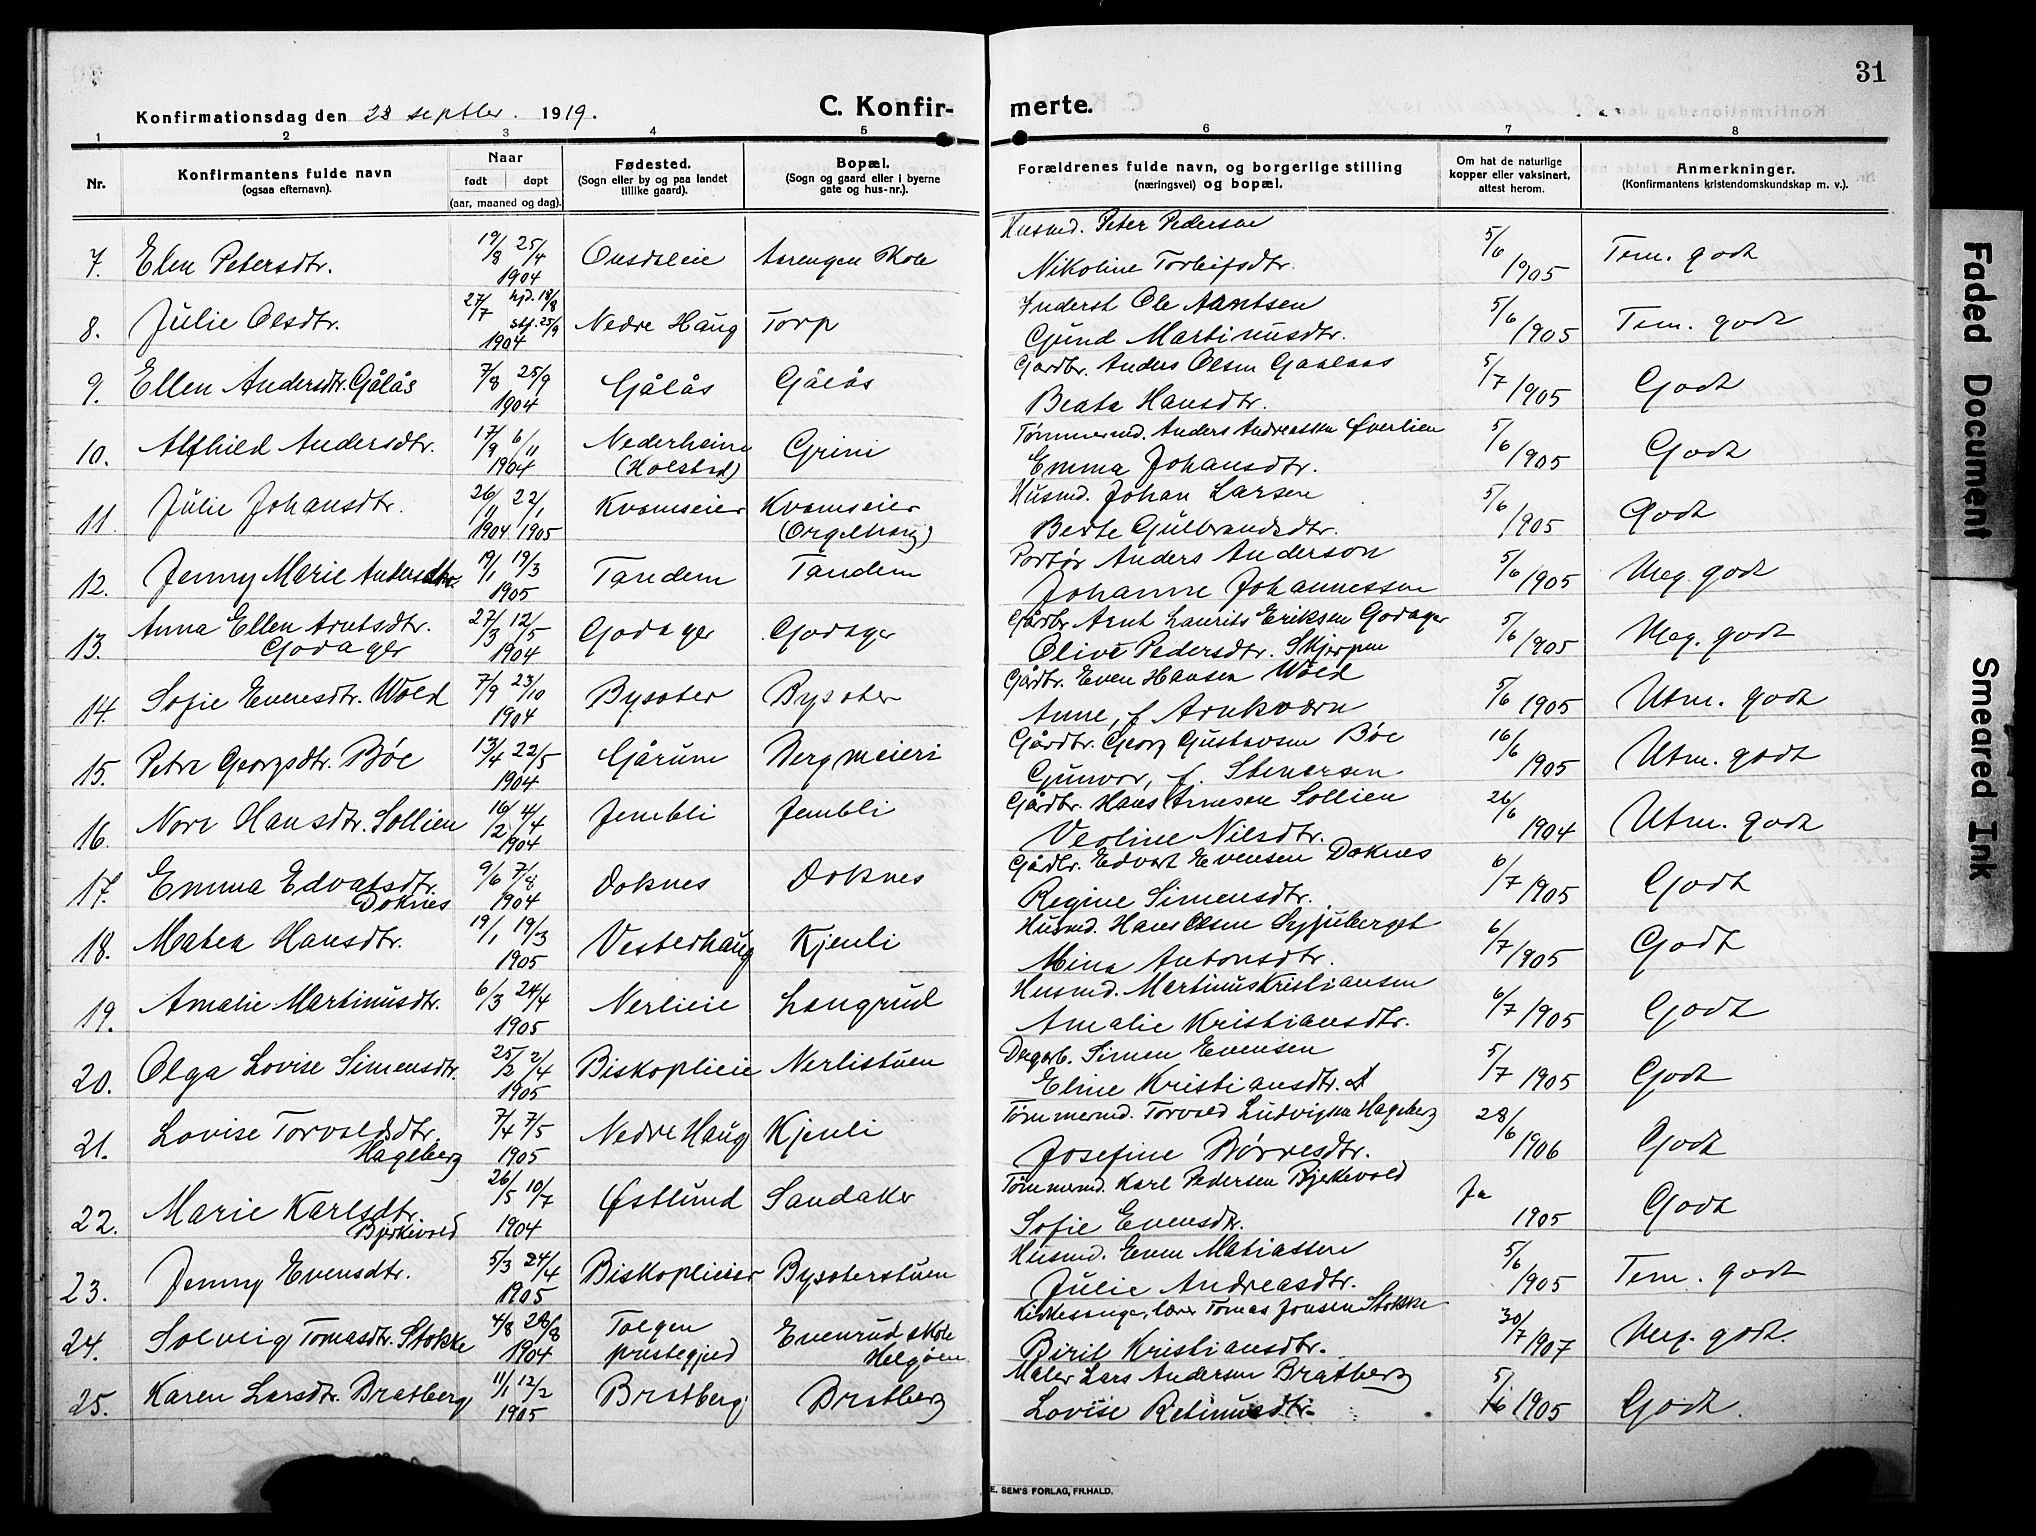 31
Konfirmationsdag den 28 septbr. 1919.
C. Konfirmerte.
1 2 3 4 5 6 7 8
Nr.
Konfirmantens fulde navn
(ogsaa efternavn).
Naar
født døpt
(aar, maaned og dag).
Fødested.
(Sogn eller by og paa landet
tillike gaard).
Bopæl.
(Sogn og gaard eller i byerne
gate og hus-nr.).
Forældrenes fulde navn, og borgerlige stilling
(næringsvei) og bopæl.
Om hat de naturlige
kopper eller vaksinert,
attest herom.
Anmerkninger.
(Konfirmantens kristendomskundskap m. v.).
Husmd. Peter Pederson
7. Elen Petersdtr. 19/8 25/4 1904 Aarengen Skole Nikoline Torleifsdtr. 5/6 1905 Tem. godt
Inderst Ole Arntsen
8. Julie Olsdtr. 27/7 hjd. 18/8 stf. 25/9 1904 Nedre Haug Torp Gund Martinusdtr. 5/6 1905 Tem. godt
Gardbr. Anders Olsen Gaalaas
9. Ellen Andersdtr. Gålås 7/8 25/9 1904 Gålås Gålås Beate Hansdtr. 5/7 1905 Godt
Tømmermd. Anders Andreassen Øverlien
10. Alfhild Andersdtr. 17/9 6/11 1904 Nederheim (Holstad) Grini Emma Johansdtr. 5/6 1905 Godt
Husmd. Johan Larsen
11. Julie Johansdtr. 26/11 1904 22/1 1905 Kvamseier Kvamseier (Orgelharg) Berte Gulbrandsdtr. 5/6 1905 Godt
Portør Anders Anderson
12. Jenny Marie Andersdtr. 19/1 19/3 1905 Tandem Tandem Johanne Johannessen 5/6 1905 Meg. godt
Gårdbr. Arnt Laurits Eriksen Godager
13. Anna Ellen Arntsdtr. Godager 27/3 12/5 1904 Godager Godager Olive Pedersdtr. Skjerpen 5/6 1905 Meg. godt
Gårdbr. Even Hansen Wold
14. Sofie Evensdtr. Wold 7/9 23/10 1904 Bysæter Bysæter Anne, f. Arnkværn 5/6 1905 Utm. godt
Gårdbr. Georg Gustavsen Bøe
15. Petra Georgsdtr. Bøe 13/4 22/5 1904 Gårum Berg meieri Gunvor, f. Stenersen 16/6 1905 Utm. godt
Gårdbr. Hans Arnesen Sollien
16. Nora Hansdtr. Sollien 16/2 4/4 1904 Jembli Jembli Veoline Nilsdtr. 26/6 1904 Utm. godt
Gårdbr. Edvart Evensen Doknes
17. Emma Edvatsdtr. Doknes 9/6 7/8 1904 Doknes Doknes Regine Simensdtr. 6/7 1905 Godt
Husmd. Hans Olsen
18. Matea Hansdtr. 19/1 19/3 1905 Vesterhaug Kjenli Mina Antonsdtr. 6/7 1905 Godt
Husmd. Martinus Kristiansen
19. Amalie Martinusdtr. 6/3 24/4 1905 Nerlieie Langrud Amalie Kristiansdtr. 6/7 1905 Godt
Dagarb. Simen Evensen
20. Olga Lovise Simensdtr. 25/2 2/4 1905 Biskoplieie Nerlistuen Eline Kristiansdtr. 5/7 1905 Godt
Tømmermd. Torvald Ludvigsen Hageberg
21. Lovise Torvaldsdtr. Hageberg 7/4 7/5 1905 Nedre Haug Kjenli Josefine Børresdtr. 28/6 1906 Godt
Tømmermd. Karl Pedersen Bjerkevold
22. Marie Karlsdtr. Bjerkevold 26/5 10/7 1904 Østlund Sandaker Sofie Evensdtr. Ja 1905 Godt
Husmd. Even Matiassen
23. Jenny Evensdtr. 5/3 24/4 1905 Biskoplieier Bysæterstuen Julie Andreasdtr. 5/6 1905 Tem. godt
Kirkesanger, lærer Tomas Jonsen Stokke
24. Solveig Tomasdtr. Stokke 4/8 28/8 1904 Tolgen prestegjeld Evenrud skole Helgøen Birit Kristiansdtr. 30/7 1907 Meg. godt.
Maler Lars Andersen Bratberg
25. Karen Larsdtr. Bratberg 11/1 12/2 1905 Bratberg Bratberg Lovise 5/6 1905 Godt
E. SEM'S FORLAG, FR.HALD.
Faded Document
Smeared Ink